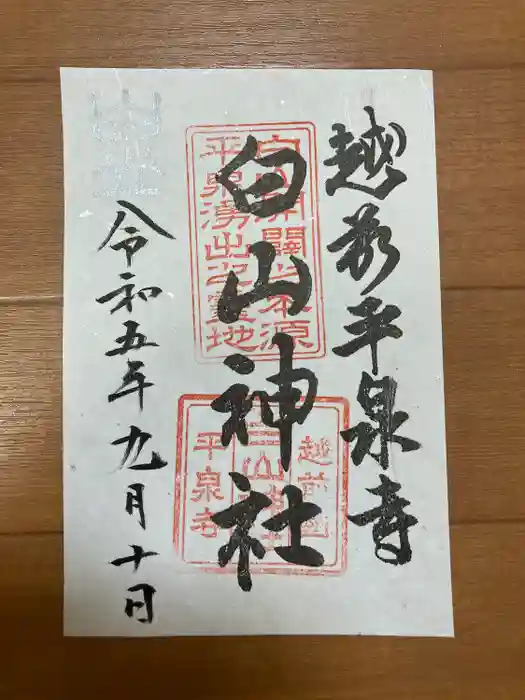 越前平泉寺
白山神社
令和五年九月十日
白山開闢之本源
平泉湧出之霊地
越前國
平泉寺